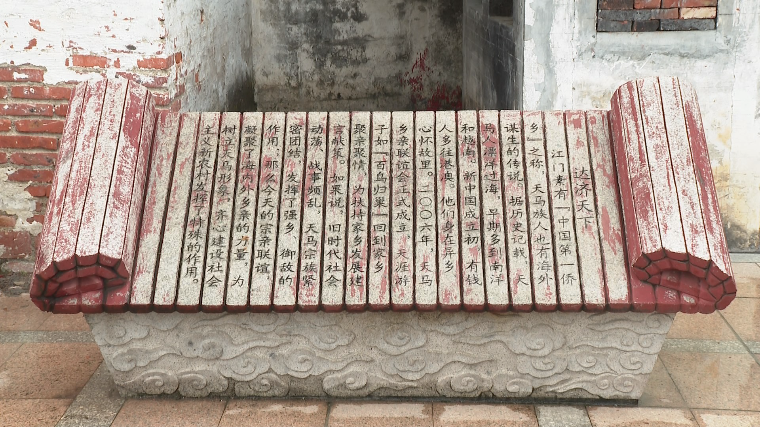 达济天下
江门素有“中国第一侨
乡”之称，天马族人也有海外
谋生的传说。据历史记载，天
马人漂洋过海，早期多到南洋
和越南。新中国成立初，有钱
人多往港澳。他们身在异乡，
心怀故里。二〇〇六年，天马
乡亲联谊会正式成立，天涯游
子如“百鸟归巢”回到家乡
聚亲聚情，为扶持家乡发展建
言献策。如果说，旧时代社会
动荡，战事频乱，天马宗族紧
密团结，发挥了强乡 御敌的
作用，那么今天的宗亲联谊，
凝聚了海内外乡亲的力量，为
树立天马形象，齐心建设社会
主义新农村发挥了特殊的作用。